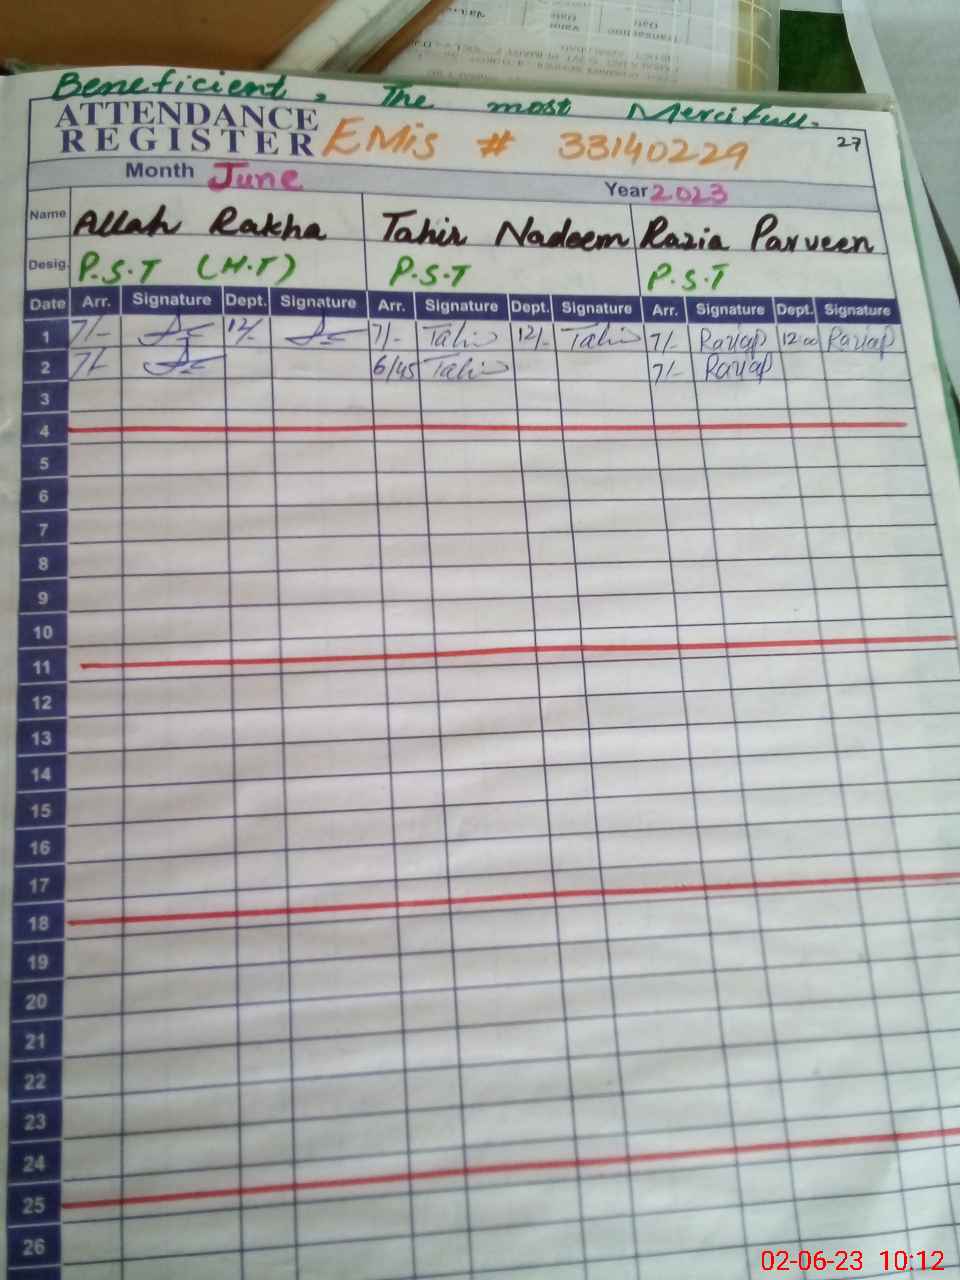 Beneficient, The most Mercifull.
ATTENDANCE
REGISTER EMis # 33140229 27
Month June Year 2023
Name Allah Rakha Tahir Nadeem Razia Parveen
Desig. P.S.T (H.T) P.S.T P.S.T
Date Arr. Signature Dept. Signature Arr. Signature Dept. Signature Arr. Signature Dept. Signature
1 7/- 12/- 7/- Tahir 12/- Tahir 7/- Raziap 12:00 Raziap
2 7/- 6/45 Tahir 7/- Raziap
3
4
5
6
7
8
9
10
11
12
13
14
15
16
17
18
19
20
21
22
23
24
25
26
02-06-23 10:12